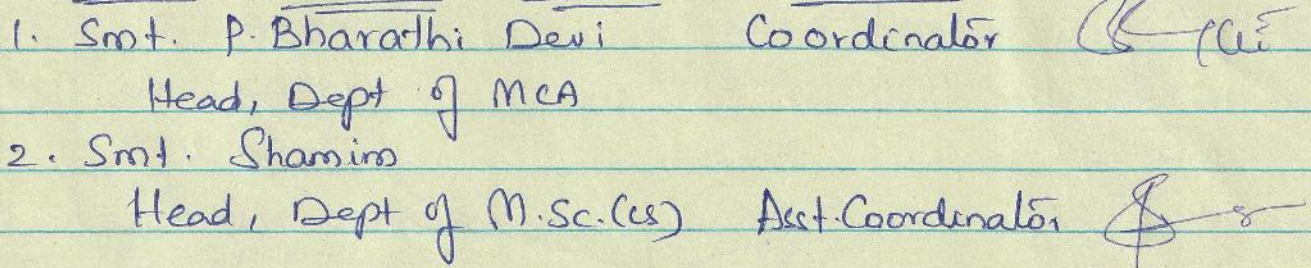 1. Smt. P. Bharathi Devi Coordinator
Head, Dept of MCA
2. Smt. Shamim
Head, Dept of M.Sc.(cs) Asst. Coordinator